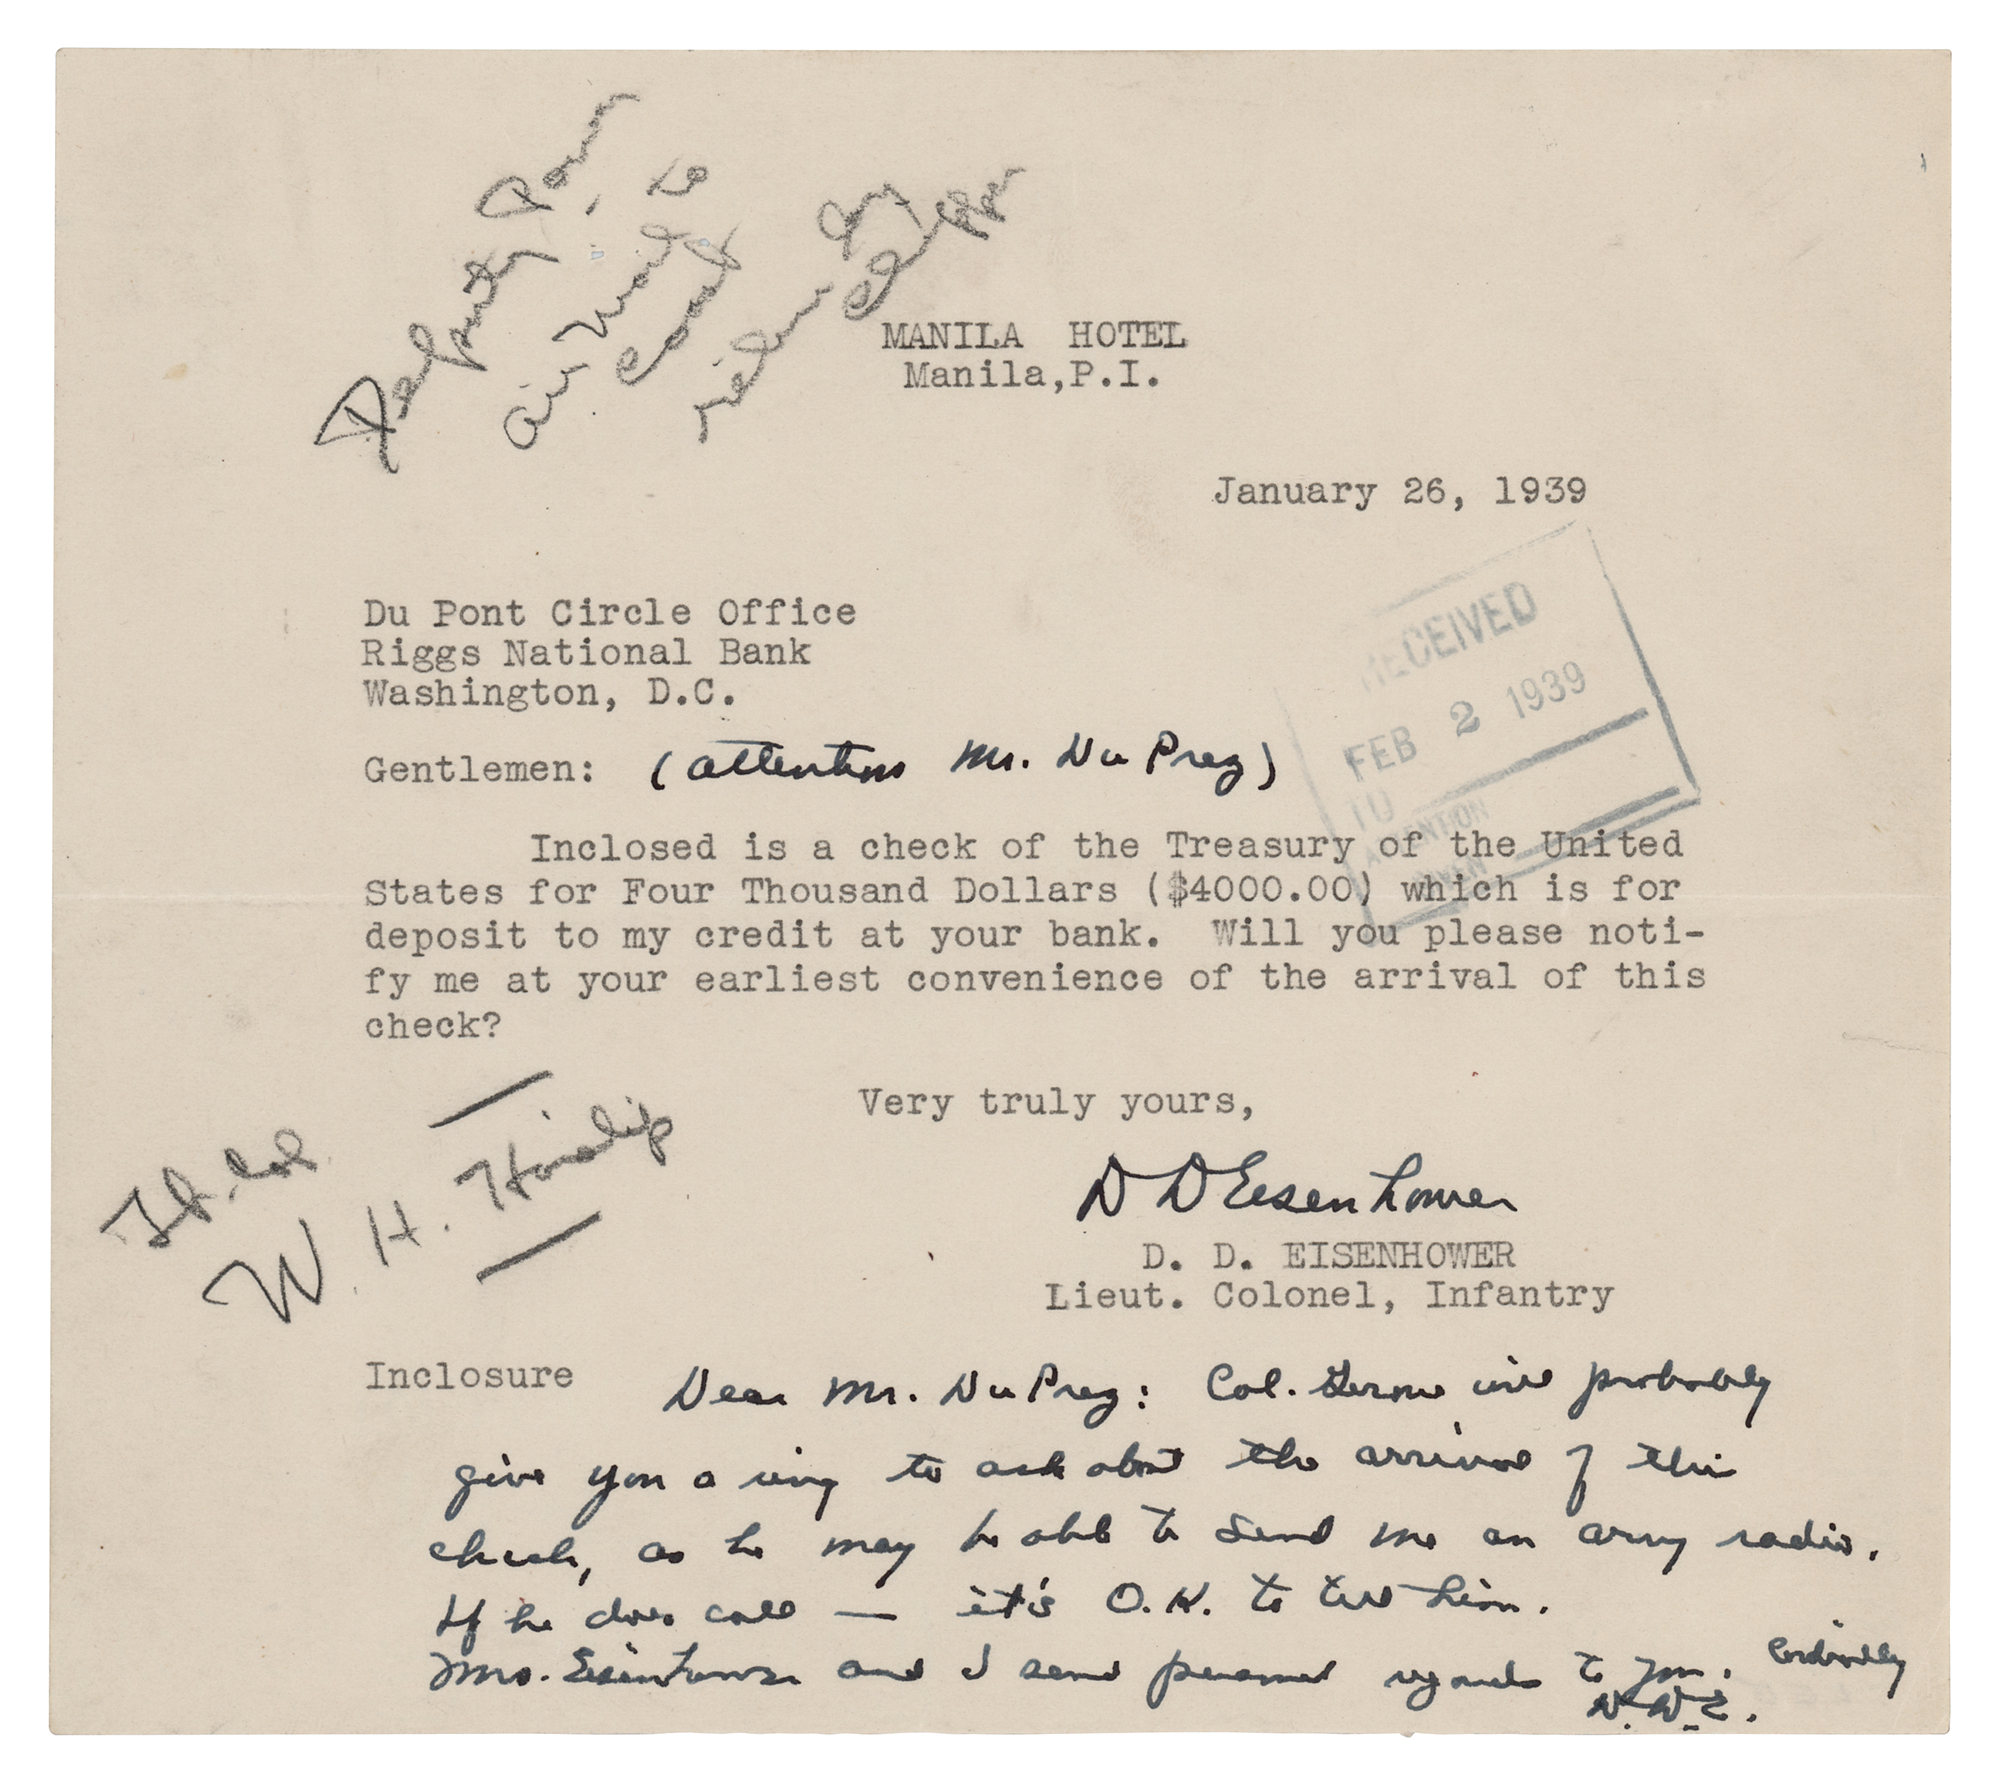 Air Mail to
MANILA HOTEL
Manila,P.I.
January 26, 1939
RECEIVED
FEB 2 1939
TO
ATTENTION
Du Pont Circle Office
Riggs National Bank
Washington, D.C.
Gentlemen: (Attention Mr. Du Prez)
Inclosed is a check of the Treasury of the United
States for Four Thousand Dollars ($4000.00) which is for
deposit to my credit at your bank. Will you please noti-
fy me at your earliest convenience of the arrival of this
check?
Very truly yours,
D D Eisenhower
D. D. EISENHOWER
Lieut. Colonel, Infantry
Lt. Col.
W. H.
Inclosure
Dear Mr. Du Prez: Col. Gerow will probably
give you a ring to ask about the arrival of this
check, as he may be able to send me an army radio.
If he does call — it's O.K. to tell him.
Mrs. Eisenhower and I send personal regards to you. Cordially
D.D.E.